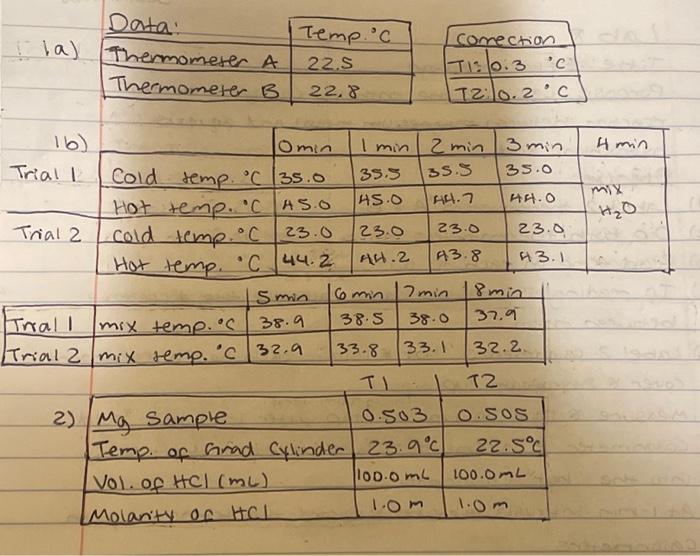 Data:
Temp. °C
Correction
1a) Thermometer A 22.5 T1: 0.3 °C
Thermometer B 22.8 T2: 0.2 °C
1b) 0min 1 min 2 min 3 min 4 min
Trial 1 Cold temp. °C 35.0 35.5 35.5 35.0 mix H₂O
Hot temp. °C 45.0 45.0 44.7 44.0
Trial 2 Cold temp. °C 23.0 23.0 23.0 23.0
Hot temp. °C 44.2 44.2 43.8 43.1
5min 6min 7min 8min
Trial 1 mix temp. °C 38.9 38.5 38.0 37.9
Trial 2 mix temp. °C 32.9 33.8 33.1 32.2
T1 T2
2) Mg Sample 0.503 0.505
Temp. of Grad Cylinder 23.9°C 22.5°C
Vol. of HCl (mL) 100.0mL 100.0mL
Molarity of HCl 1.0 m 1.0m